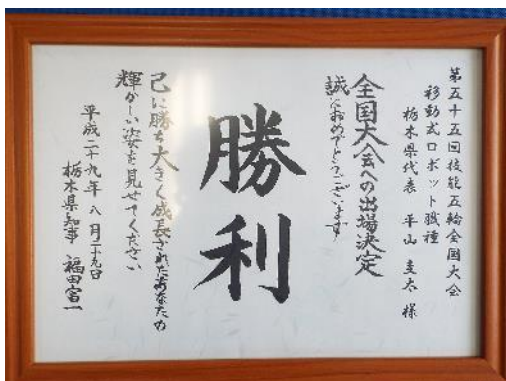 第五十五回技能五輪全国大会
移動式ロボット職種
栃木県代表 平山 圭太 様
全国大会への出場決定
誠におめでとうございます
勝利
己に勝ち大きく成長されたあなたの
輝かしい姿を見せてください
平成二十九年八月二十九日
栃木県知事 福田富一